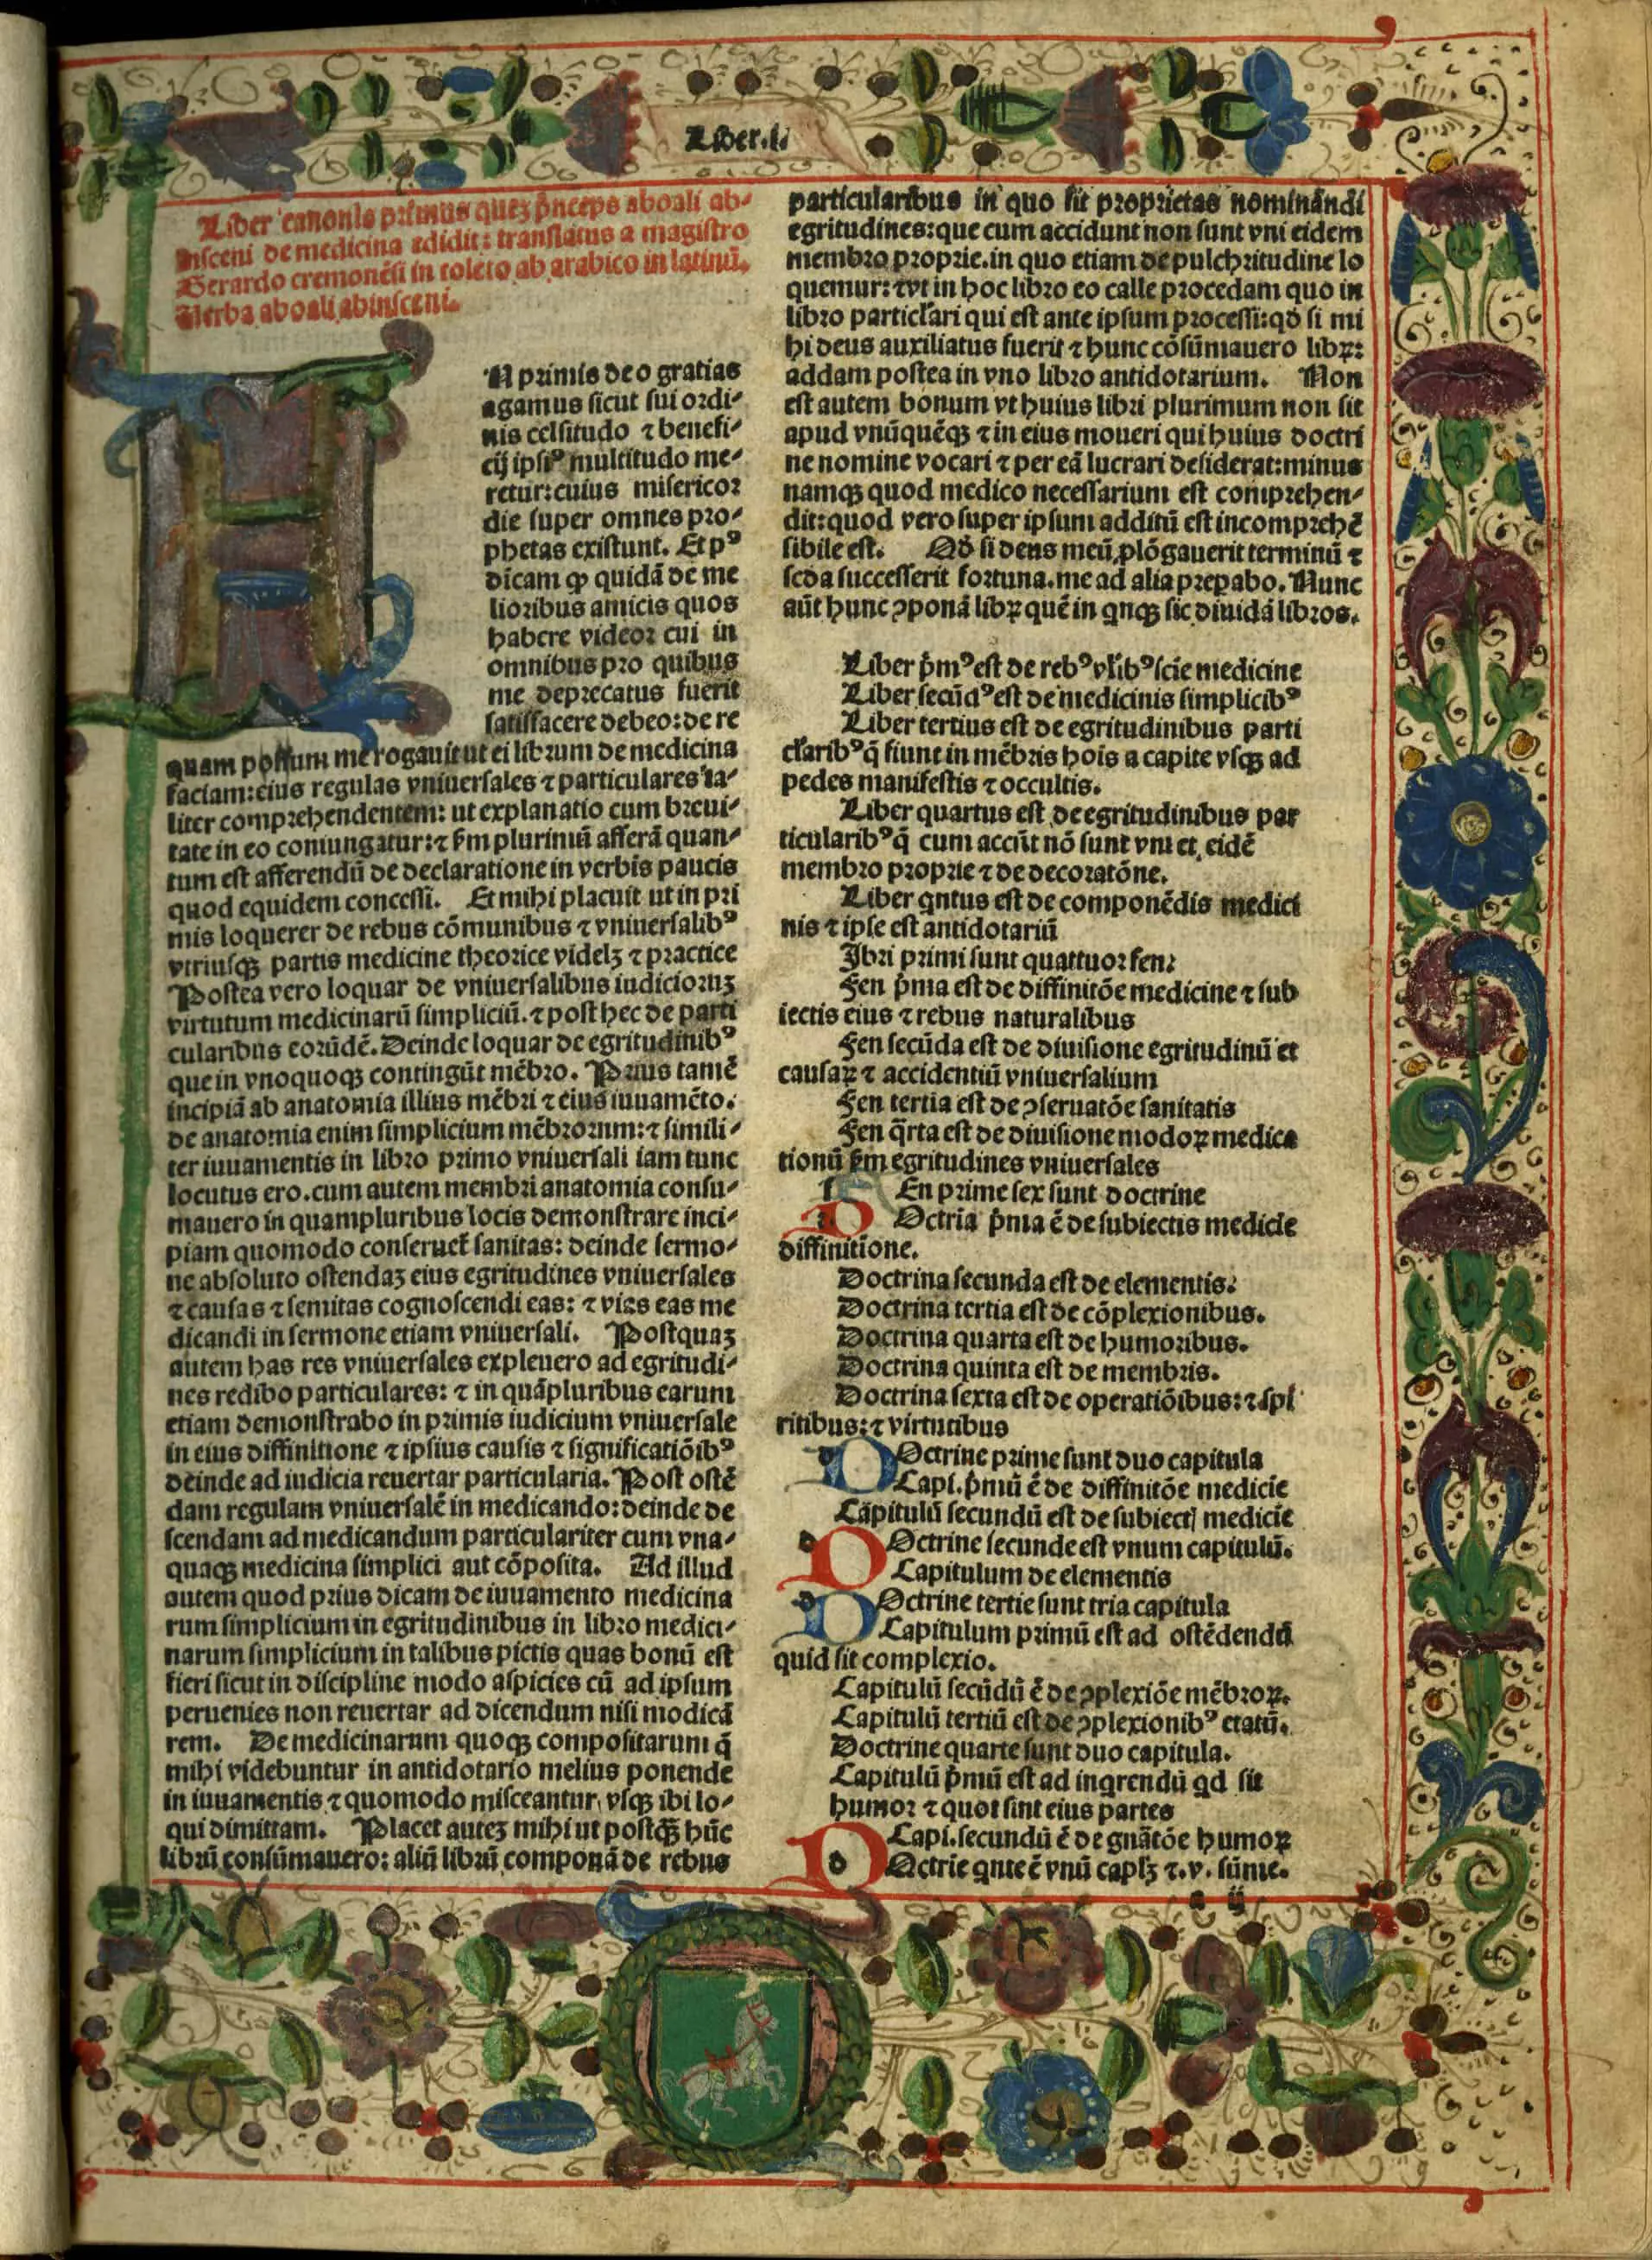 Liber .i.
Liber canonis primus quez p̄nceps aboali ab-
insceni de medicina edidit: translatus a magistro
Gerardo cremonēsi in toleto ab arabico in latinū.
Verba aboali abinsceni.
IN primis deo gratias
agamus sicut sui ordi-
nis celsitudo ⁊ benefi-
cij ipsiꝰ multitudo me-
retur: cuius misericor
die super omnes pro-
phetas existunt. Et pꝰ
dicam ꝙ quidā de me
lioribus amicis quos
habere videor cui in
omnibus pro quibus
me deprecatus fuerit
satisfacere debeo: de re
quam possum me rogauit ut ei librum de medicina
faciam: eius regulas vniuersales ⁊ particulares ta-
liter comprehendentem: ut explanatio cum breui-
tate in eo coniungatur: ⁊ ẜm plurimū afferā quan-
tum est afferendū de declaratione in verbis paucis
quod equidem concessi. Et mihi placuit ut in pri
mis loquerer de rebus cōmunibus ⁊ vniuersalibꝰ
vtriusqꝫ partis medicine theorice videlꝫ ⁊ practice
Postea vero loquar de vniuersalibus iudicioruꝫ
virtutum medicinarū simpliciū. ⁊ post hec de parti
cularibus eorūdē. Deinde loquar de egritudinibꝰ
que in vnoquoqꝫ contingūt mēbro. Prius tamē
incipiā ab anatomia illius mēbri ⁊ eius iuuamēto.
de anatomia enim simplicium mēbrorum: ⁊ simili-
ter iuuamentis in libro primo vniuersali iam tunc
locutus ero. cum autem membri anatomia consu-
mauero in quampluribus locis demonstrare inci-
piam quomodo conseruet̄ sanitas: deinde sermo-
ne absoluto ostendaꝫ eius egritudines vniuersales
⁊ causas ⁊ semitas cognoscendi eas: ⁊ vias eas me
dicandi in sermone etiam vniuersali. Postquaꝫ
autem has res vniuersales expleuero ad egritudi-
nes redibo particulares: ⁊ in quāpluribus earum
etiam demonstrabo in primis iudicium vniuersale
in eius diffinitione ⁊ ipsius causis ⁊ significatiōibꝰ
deinde ad iudicia reuertar particularia. Post ostē
dam regulam vniuersalē in medicando: deinde de
scendam ad medicandum particulariter cum vna-
quaqꝫ medicina simplici aut cōposita. Ad illud
autem quod prius dicam de iuuamento medicina
rum simplicium in egritudinibus in libro medici-
narum simplicium in talibus pictis quas bonū est
fieri sicut in discipline modo aspicies cū ad ipsum
peruenies non reuertar ad dicendum nisi modicā
rem. De medicinarum quoqꝫ compositarum q̄
mihi videbuntur in antidotario melius ponende
in iuuamentis ⁊ quomodo misceantur, vsqꝫ ibi lo-
qui dimittam. Placet auteꝫ mihi ut postqꝫ hūc
librū consūmauero: aliū librū componā de rebus
particularibus in quo sit proprietas nominandi
egritudines: que cum accidunt non sunt vni eidem
membro proprie. in quo etiam de pulchritudine lo
quemur: ⁊ vt in hoc libro eo calle procedam quo in
libro particl'ari qui est ante ipsum processi: qd̄ si mi
hi deus auxiliatus fuerit ⁊ hunc cōsūmauero librꝝ:
addam postea in vno libro antidotarium. Non
est autem bonum vt huius libri plurimum non sit
apud vnūquēqꝫ ⁊ in eius moueri qui huius doctri
ne nomine vocari ⁊ per eā lucrari desiderat: minus
namqꝫ quod medico necessarium est comprehen-
dit: quod vero super ipsum additū est incomprehē
sibile est. Qd̄ si deus meū ꝓlōgauerit terminū ⁊
seda successerit fortuna. me ad alia prepabo. Nunc
aūt hunc ꝯponā librꝝ quē in qnqꝫ sic diuidā libros.
Liber p̄mꝰ est de rebꝰ vl'ibꝰ scie medicine
Liber secūdꝰ est de medicinis simplicibꝰ
Liber tertius est de egritudinibus parti
cl'aribꝰ q̄ fiunt in mēbris hois a capite vsqꝫ ad
pedes manifestis ⁊ occultis.
Liber quartus est de egritudinibus par
ticularibꝰ q̄ cum accūt nō sunt vni et eidē
membro proprie ⁊ de decoratōne.
Liber qntus est de componēdis medici
nis ⁊ ipse est antidotariū
Ibri primi sunt quattuor fen:
Fen p̄ma est de diffinitōe medicine ⁊ sub
iectis eius ⁊ rebus naturalibus
Fen secūda est de diuisione egritudinū et
causaꝝ ⁊ accidentiū vniuersalium
Fen tertia est de ꝯseruatōe sanitatis
Fen q̄rta est de diuisione modoꝝ medica
tionū ẜm egritudines vniuersales
f En prime sex sunt doctrine
D Octria p̄ma ē de subiectis medicie
diffinitione.
Doctrina secunda est de elementis:
Doctrina tertia est de cōplexionibus.
Doctrina quarta est de humoribus.
Doctrina quinta est de membris.
Doctrina sexta est de operatiōibus: ⁊ spi
ritibus: ⁊ virtutibus
D Octrine prime sunt duo capitula
Capi. p̄mū ē de diffinitōe medicie
Capitulū secundū est de subiectꝭ medicie
D Octrine secunde est vnum capitulū.
Capitulum de elementis
D Octrine tertie sunt tria capitula
Capitulum primū est ad ostēdendū
quid sit complexio.
Capitulū secūdū ē de ꝯplexiōe mēbroꝝ.
Capitulū tertiū est de ꝯplexionibꝰ etatū.
Doctrine quarte sunt duo capitula.
Capitulū p̄mū est ad inqrendū qd sit
humor ⁊ quot sint eius partes
Capi. secundū ē de gnātōe humoꝝ
D Octrie qnte ē vnū caplꝫ ⁊ .v. sūme.
a ij